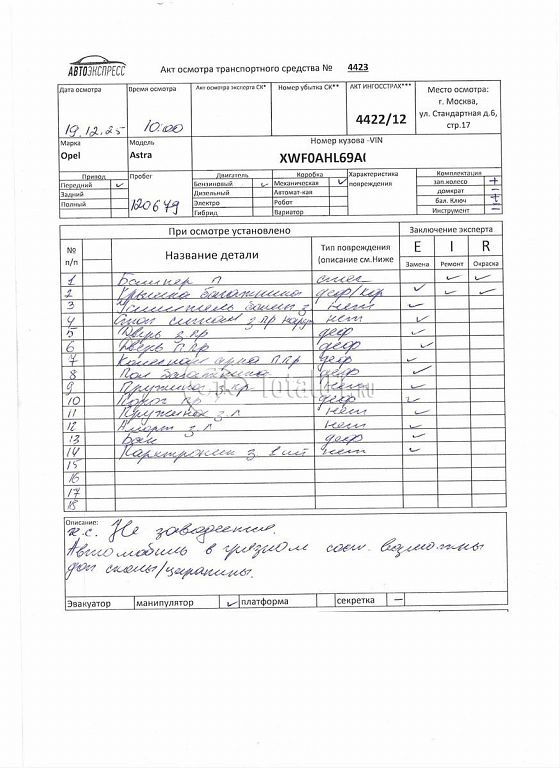 АВТОЭКСПРЕСС
Акт осмотра транспортного средства № 4423
Дата осмотра Время осмотра Акт осмотра эксперта СК* Номер убытка СК** АКТ ИНГОССТРАХ*** Место осмотра:
г. Москва,
ул. Стандартная д.6,
стр.17
19.12.25 10:00 4422/12
Марка Модель Номер кузова -VIN
Opel Astra XWF0AHL69A
Привод Пробег Двигатель Коробка Характеристика повреждения Комплектация
Передний ✓ Бензиновый ✓ Механическая ✓ зап.колесо +
Задний Дизельный Автомат-кая домкрат –
Полный 120679 Электро Робот бал. Ключ +
Гибрид Вариатор Инструмент –
При осмотре установлено Заключение эксперта
№ п/п Название детали Тип повреждения (описание см.Ниже E I R
Замена Ремонт Окраска
1 Бампер П ✓ ✓
2 Крышка багажника деф/кор ✓ ✓ ✓
3 Усилитель з нет ✓
4 Стоп сигнал з пр наруж нет ✓
5 Дверь з пр деф ✓
6 Дверь п пр деф ✓
7 Колесная арка п пр деф ✓
8 Пол багажника деф ✓
9 Пружина нет ✓
10 Порог пр деф ✓
11 Пружина з л нет ✓
12 Аморт з.л нет ✓
13 Бак деф ✓
14 Парктроник з нет ✓
15
16
17
18
Описание:
н.с. Не заводится.
Автомобиль в грязном сост. возможны
доп сколы/царапины.
Эвакуатор манипулятор ✓ платформа секретка –
TOTAL .RU